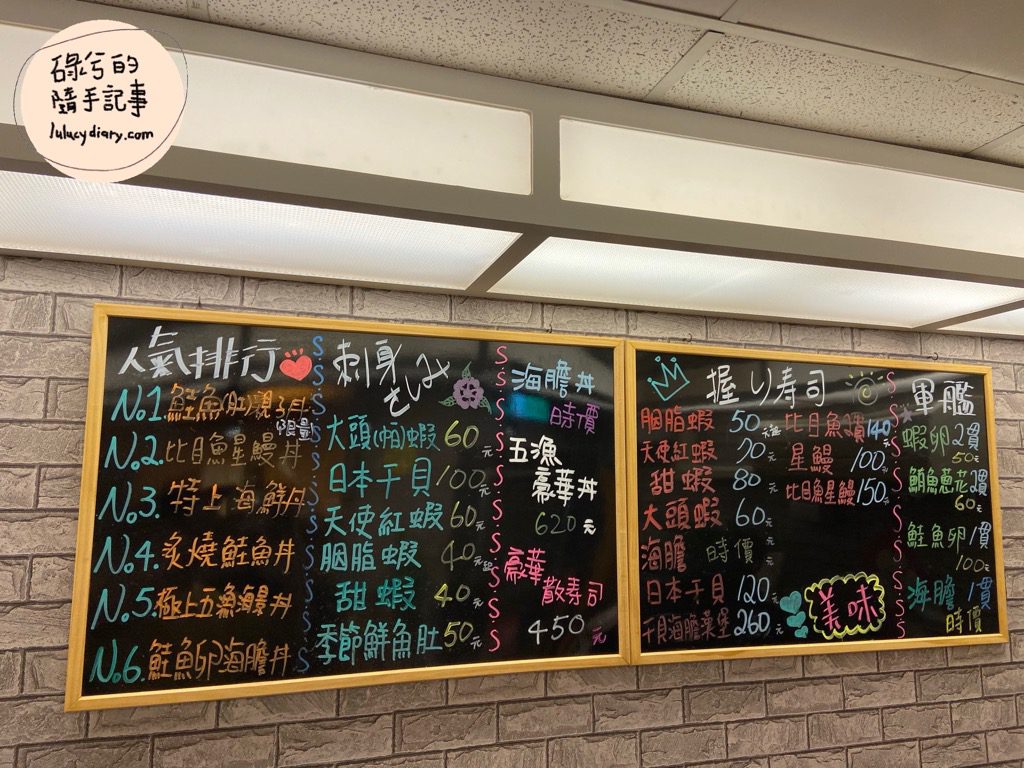 碌兮的
隨手記事
lulucydiary.com
人氣排行
No.1.鮭魚(肚)親子丼
限量
No.2.比目魚星鰻丼
No.3.特上海鮮丼
No.4.炙燒鮭魚丼
No.5.極上五漁鰻丼
No.6.鮭魚卵海膽丼
刺身
さしみ
大頭(帕)蝦 60元
日本干貝100元
天使紅蝦60元
胭脂蝦 40元起
甜蝦 40元
季節鮮魚肚50元
海膽丼
時價
五漁
豪華丼
620元
豪華
散寿司
450元
握り寿司
胭脂蝦 50元
天使紅蝦 70元
甜蝦 80元
大頭蝦 60元
海膽 時價
日本干貝 120元
干貝海膽漢堡 260元
比目魚2貫140元
星鰻 100元
比目魚星鰻150元
美味
軍艦
蝦卵2貫
50元
鮪魚蔥花2貫
60元
鮭魚卵1貫
100元
海膽1貫
時價